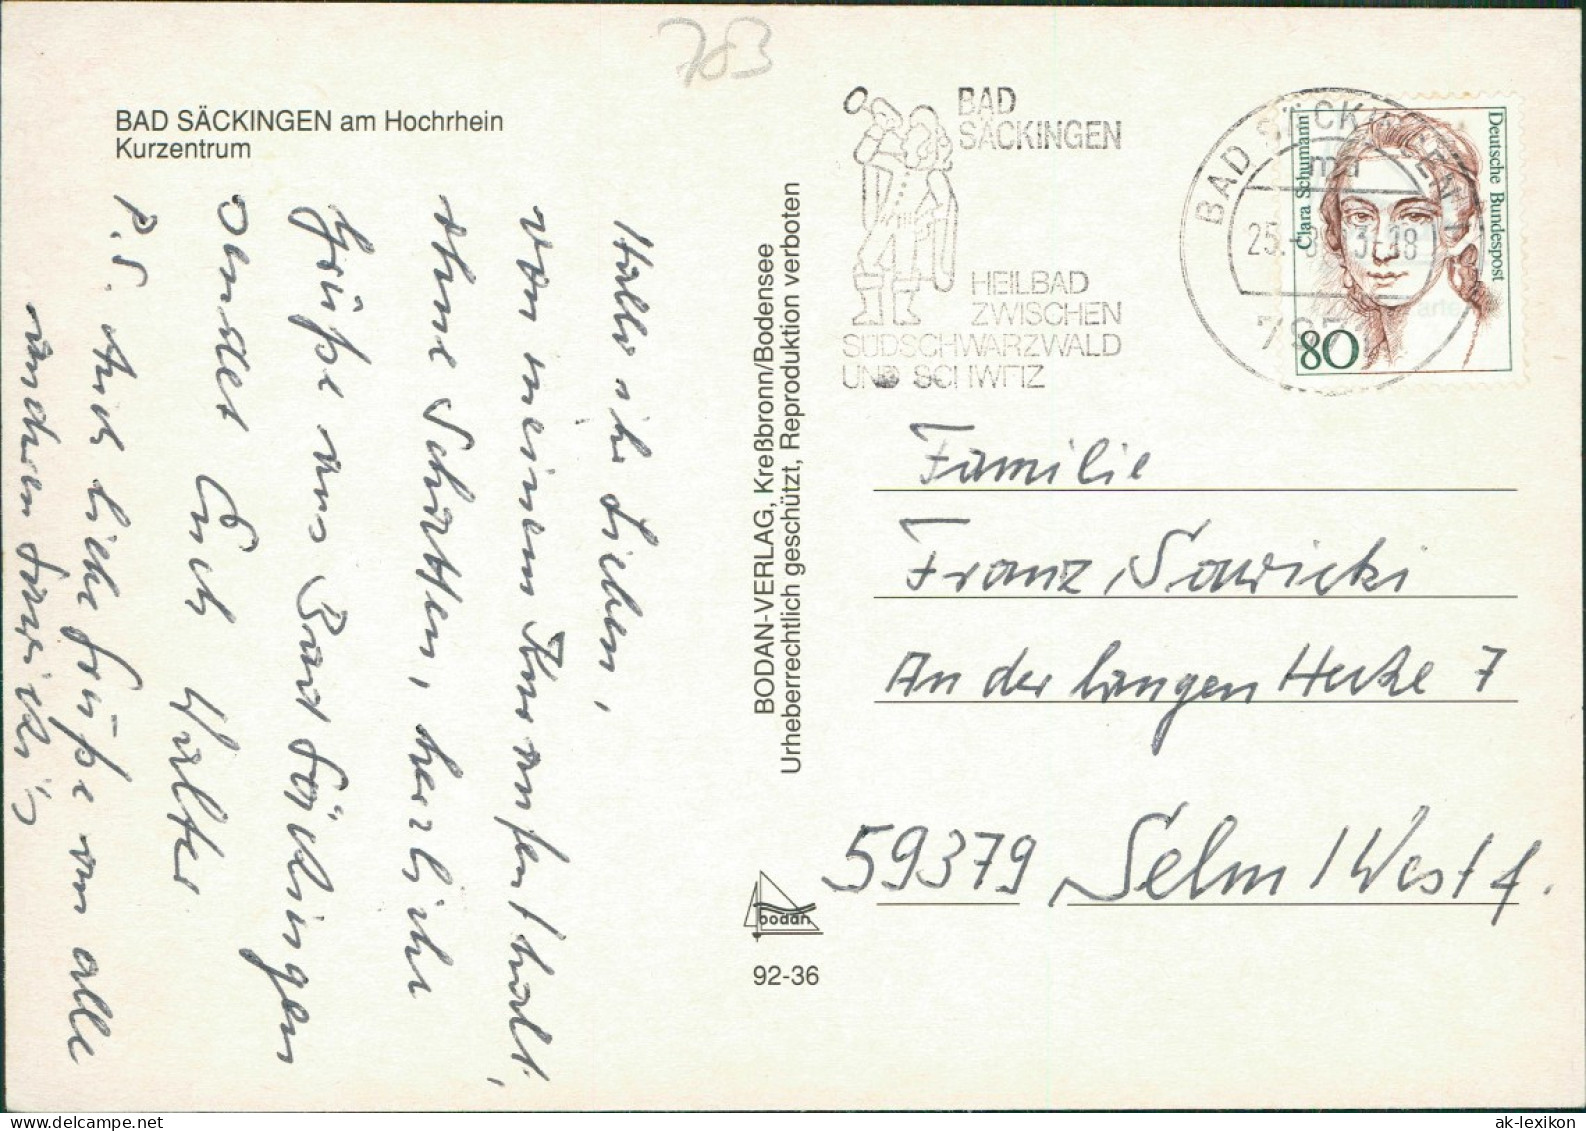 703
BAD SÄCKINGEN am Hochrhein
Kurzentrum
Hallo ihr Lieben,
von meinem Kuraufenthalt,
ohne Schatten, herzliche
Grüße aus Bad Säckingen
sendet Euch Walter
P.S. Auch liebe Grüße von alle
anderen Sawickis
BODAN-VERLAG, Kreßbronn/Bodensee
Urheberrechtlich geschützt, Reproduktion verboten
bodan
92-36
BAD
SÄCKINGEN
HEILBAD
ZWISCHEN
SÜDSCHWARZWALD
UND SCHWEIZ
BAD SÄCKINGEN 1
ma
25.
-18
Clara Schumann
Deutsche Bundespost
80
Familie
Franz Sawicki
An der langen Hecke 7
59379 Selm / Westf.
ak-lexikon